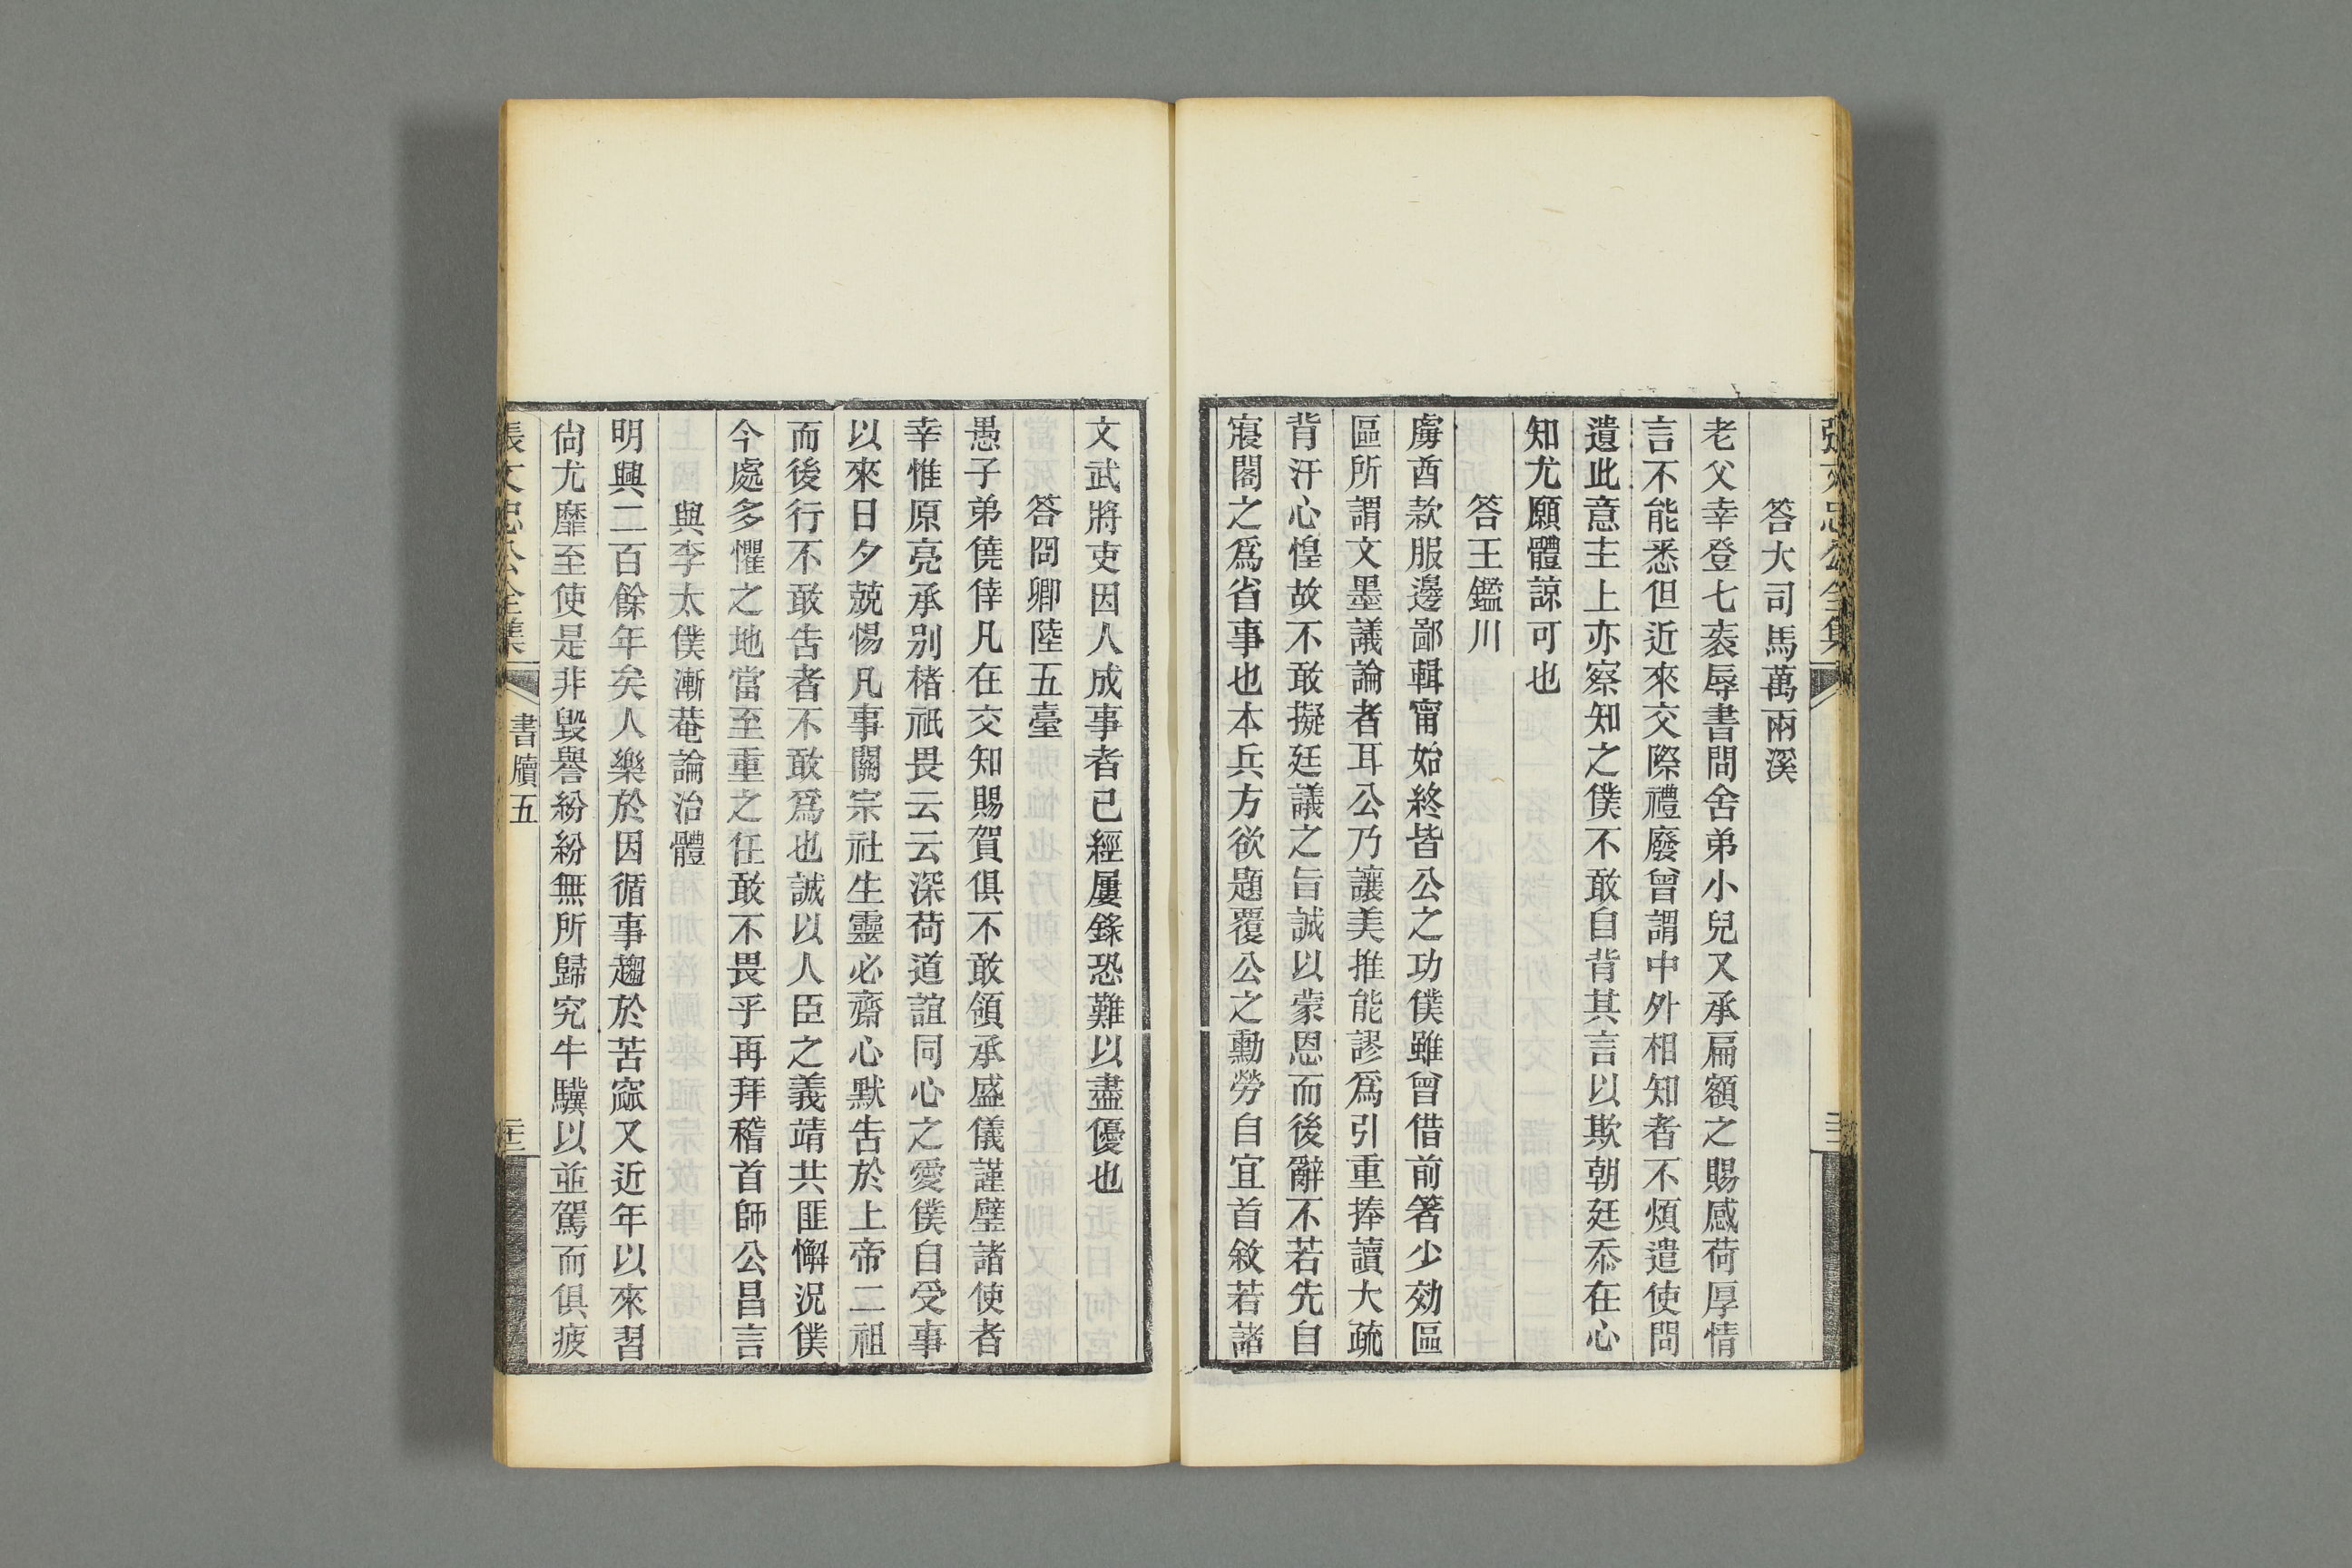 張文忠公全集
答大司馬萬兩溪
老父幸登七袠辱書問舍弟小兒又承扁額之賜感荷厚情
言不能悉但近來交際禮廢曾謂中外相知者不煩遣使問
遺此意主上亦察知之僕不敢自背其言以欺朝廷忝在心
知尤願體諒可也
答王鑑川
虜酋款服邊鄙輯甯始終皆公之功僕雖曾借前箸少効區
區所謂文墨議論者耳公乃讓美推能謬爲引重捧讀大疏
背汗心惶故不敢擬廷議之旨誠以蒙恩而後辭不若先自
寢閣之爲省事也本兵方欲題覆公之勳勞自宜首敘若諸
文武將吏因人成事者已經屢錄恐難以盡優也
答冏卿陸五臺
愚子弟僥倖凡在交知賜賀俱不敢領承盛儀謹璧諸使者
幸惟原亮承别楮祇畏云云深荷道誼同心之愛僕自受事
以來日夕兢惕凡事關宗社生靈必齋心默告於上帝二祖
而後行不敢告者不敢爲也誠以人臣之義靖共匪懈況僕
今處多懼之地當至重之任敢不畏乎再拜稽首師公昌言
與李太僕漸菴論治體
明興二百餘年矣人樂於因循事趨於苦窳又近年以來習
尙尤靡至使是非毀譽紛紛無所歸究牛驥以並駕而俱疲
張文忠公全集
書牘五